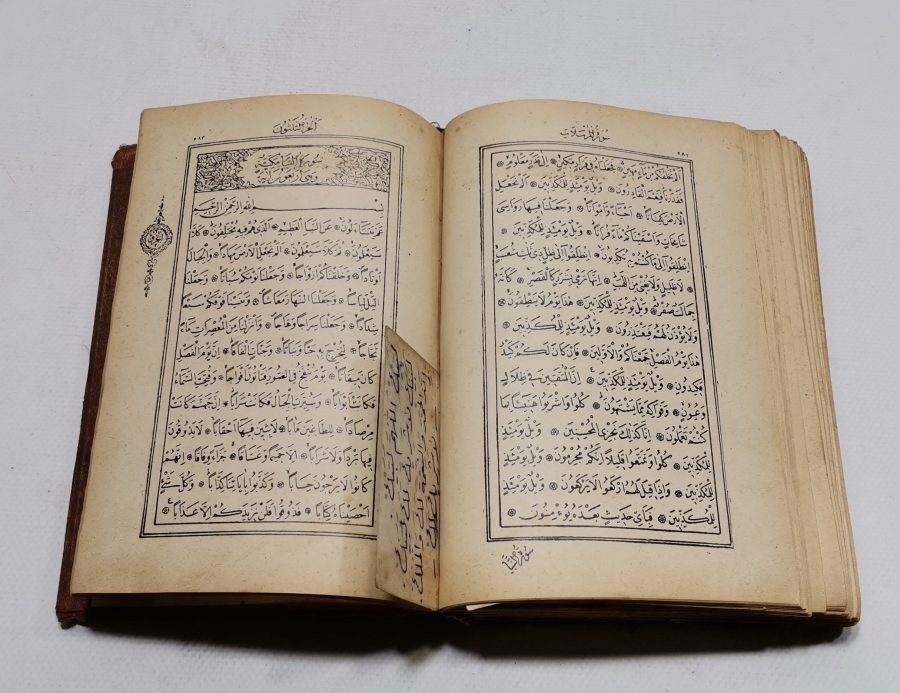 سورة المرسلات
٥٨٢
اَلَمْ نَخْلُقْكُمْ مِنْ مَاءٍ مَهِينٍ ۞ فَجَعَلْنَاهُ فِي قَرَارٍ مَكِينٍ ۞ اِلٰى قَدَرٍ مَعْلُومٍ ۞
فَقَدَرْنَا فَنِعْمَ الْقَادِرُونَ ۞ وَيْلٌ يَوْمَئِذٍ لِلْمُكَذِّبِينَ ۞ اَلَمْ نَجْعَلِ
الْاَرْضَ كِفَاتًا ۞ اَحْيَاءً وَاَمْوَاتًا ۞ وَجَعَلْنَا فِيهَا رَوَاسِيَ
شَامِخَاتٍ وَاَسْقَيْنَاكُمْ مَاءً فُرَاتًا ۞ وَيْلٌ يَوْمَئِذٍ لِلْمُكَذِّبِينَ ۞
اِنْطَلِقُوا اِلٰى مَا كُنْتُمْ بِهِ تُكَذِّبُونَ ۞ اِنْطَلِقُوا اِلٰى ظِلٍّ ذِي ثَلَاثِ شُعَبٍ ۞
لَا ظَلِيلٍ وَلَا يُغْنِي مِنَ اللَّهَبِ ۞ اِنَّهَا تَرْمِي بِشَرَرٍ كَالْقَصْرِ ۞ كَاَنَّهُ
جِمَالَتٌ صُفْرٌ ۞ وَيْلٌ يَوْمَئِذٍ لِلْمُكَذِّبِينَ ۞ هٰذَا يَوْمُ لَا يَنْطِقُونَ ۞
وَلَا يُؤْذَنُ لَهُمْ فَيَعْتَذِرُونَ ۞ وَيْلٌ يَوْمَئِذٍ لِلْمُكَذِّبِينَ ۞
هٰذَا يَوْمُ الْفَصْلِ جَمَعْنَاكُمْ وَالْاَوَّلِينَ ۞ فَاِنْ كَانَ لَكُمْ كَيْدٌ
فَكِيدُونِ ۞ وَيْلٌ يَوْمَئِذٍ لِلْمُكَذِّبِينَ ۞ اِنَّ الْمُتَّقِينَ فِي ظِلَالٍ
وَعُيُونٍ ۞ وَفَوَاكِهَ مِمَّا يَشْتَهُونَ ۞ كُلُوا وَاشْرَبُوا هَنِيئًا بِمَا
كُنْتُمْ تَعْمَلُونَ ۞ اِنَّا كَذٰلِكَ نَجْزِي الْمُحْسِنِينَ ۞ وَيْلٌ يَوْمَئِذٍ
لِلْمُكَذِّبِينَ ۞ كُلُوا وَتَمَتَّعُوا قَلِيلًا اِنَّكُمْ مُجْرِمُونَ ۞ وَيْلٌ يَوْمَئِذٍ
لِلْمُكَذِّبِينَ ۞ وَاِذَا قِيلَ لَهُمُ ارْكَعُوا لَا يَرْكَعُونَ ۞ وَيْلٌ يَوْمَئِذٍ
لِلْمُكَذِّبِينَ ۞ فَبِاَيِّ حَدِيثٍ بَعْدَهُ يُؤْمِنُونَ ۞
سورة النبأ
الجزء الثلثون
٥٨٣
سورة النبأ مكية
وهي اربعون اية
بِسْمِ اللّٰهِ الرَّحْمٰنِ الرَّحِيمِ
عَمَّ يَتَسَاءَلُونَ ۞ عَنِ النَّبَأِ الْعَظِيمِ ۞ الَّذِي هُمْ فِيهِ مُخْتَلِفُونَ ۞ كَلَّا
سَيَعْلَمُونَ ۞ ثُمَّ كَلَّا سَيَعْلَمُونَ ۞ اَلَمْ نَجْعَلِ الْاَرْضَ مِهَادًا ۞ وَالْجِبَالَ
اَوْتَادًا ۞ وَخَلَقْنَاكُمْ اَزْوَاجًا ۞ وَجَعَلْنَا نَوْمَكُمْ سُبَاتًا ۞ وَجَعَلْنَا
الَّيْلَ لِبَاسًا ۞ وَجَعَلْنَا النَّهَارَ مَعَاشًا ۞ وَبَنَيْنَا فَوْقَكُمْ سَبْعًا
شِدَادًا ۞ وَجَعَلْنَا سِرَاجًا وَهَّاجًا ۞ وَاَنْزَلْنَا مِنَ الْمُعْصِرَاتِ مَاءً
ثَجَّاجًا ۞ لِنُخْرِجَ بِهِ حَبًّا وَنَبَاتًا ۞ وَجَنَّاتٍ اَلْفَافًا ۞ اِنَّ يَوْمَ الْفَصْلِ
كَانَ مِيقَاتًا ۞ يَوْمَ يُنْفَخُ فِي الصُّورِ فَتَأْتُونَ اَفْوَاجًا ۞ وَفُتِحَتِ السَّمَاءُ
فَكَانَتْ اَبْوَابًا ۞ وَسُيِّرَتِ الْجِبَالُ فَكَانَتْ سَرَابًا ۞ اِنَّ جَهَنَّمَ كَانَتْ
مِرْصَادًا ۞ لِلطَّاغِينَ مَاٰبًا ۞ لَابِثِينَ فِيهَا اَحْقَابًا ۞ لَا يَذُوقُونَ
فِيهَا بَرْدًا وَلَا شَرَابًا ۞ اِلَّا حَمِيمًا وَغَسَّاقًا ۞ جَزَاءً وِفَاقًا ۞ اِنَّهُمْ
كَانُوا لَا يَرْجُونَ حِسَابًا ۞ وَكَذَّبُوا بِاٰيَاتِنَا كِذَّابًا ۞ وَكُلَّ شَيْءٍ
اَحْصَيْنَاهُ كِتَابًا ۞ فَذُوقُوا فَلَنْ نَزِيدَكُمْ اِلَّا عَذَابًا ۞
لبيك اللهم لبيك